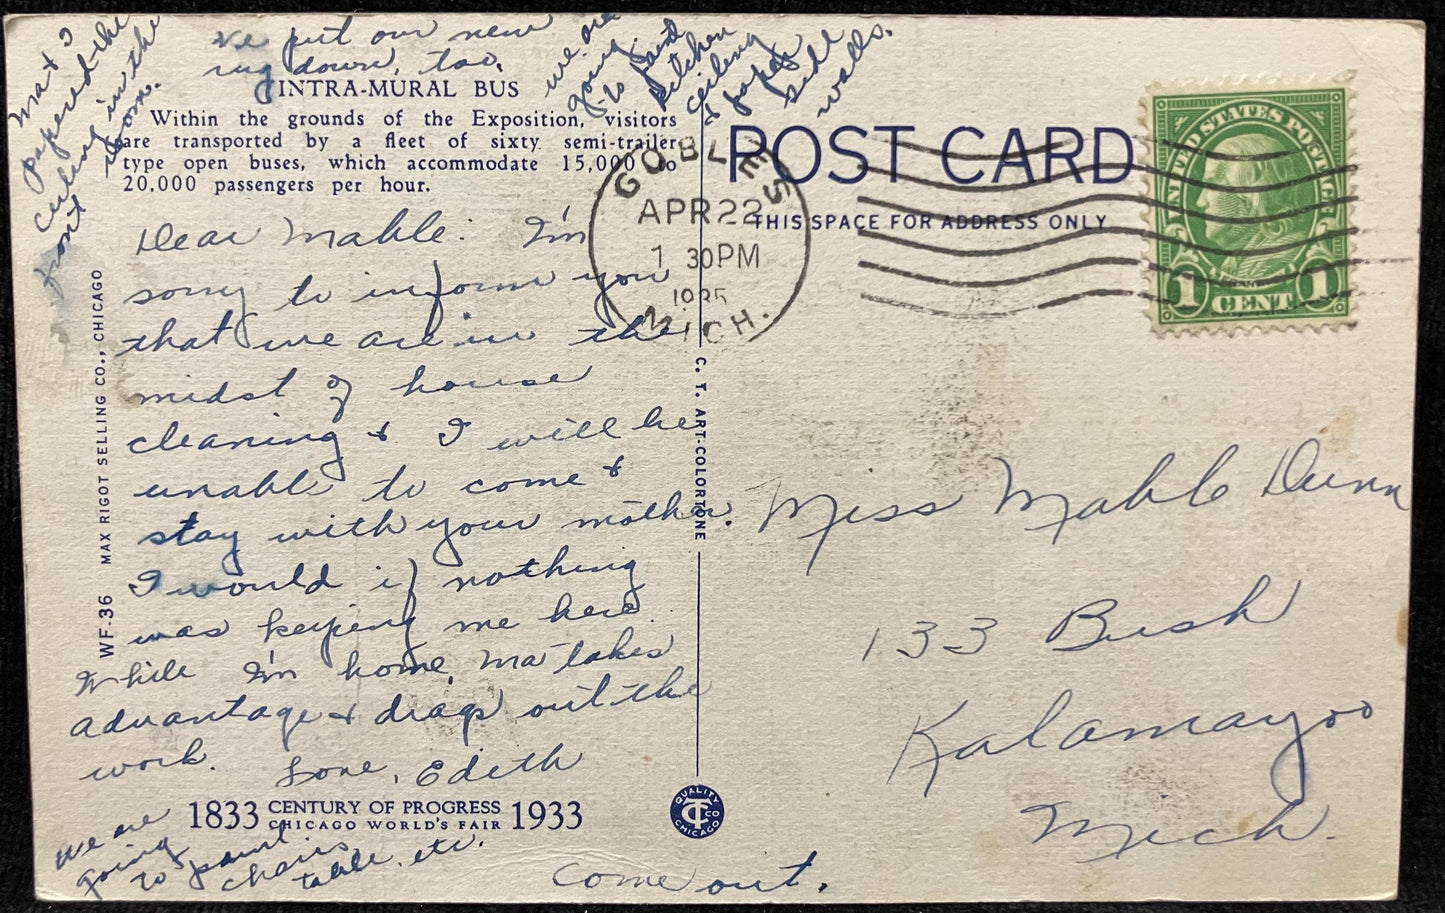 Ma & I
papered the
ceiling in the
front room.
We put our new
rug down, too.
we are
going
to paint
kitchen
ceiling
& paper
side
walls.
INTRA-MURAL BUS
Within the grounds of the Exposition, visitors
are transported by a fleet of sixty semi-trailer
type open buses, which accommodate 15,000 to
20,000 passengers per hour.
Dear Mable: I'm
sorry to inform you
that we are in the
midst of house
cleaning & I will be
unable to come &
stay with your mother.
I would if nothing
was keeping me here.
While I'm home, Ma takes
advantage & drags out the
work. Love, Edith
1833 CENTURY OF PROGRESS 1933
CHICAGO WORLD'S FAIR
we are
going
to paint
chairs,
table, etc.
Come out.
WF-36 MAX RIGOT SELLING CO., CHICAGO
C. T. ART-COLORTONE
QUALITY
CT CO
CHICAGO
POST CARD
THIS SPACE FOR ADDRESS ONLY
GOBLES
APR 22
1 30 PM
1935
MICH.
UNITED STATES POSTAGE
1 CENT 1
Miss Mable Dunn
133 Bush
Kalamazoo
Mich.